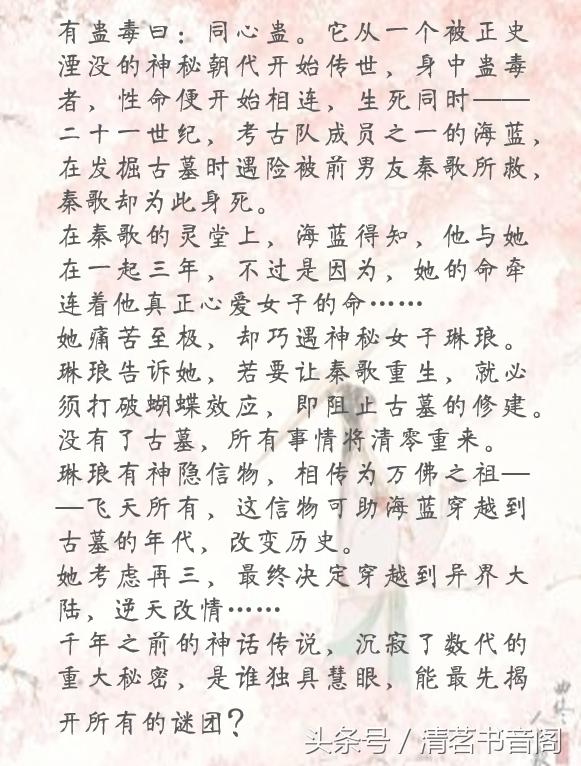 有蛊毒曰：同心蛊。它从一个被正史
湮没的神秘朝代开始传世，身中蛊毒
者，性命便开始相连，生死同时——
二十一世纪，考古队成员之一的海蓝，
在发掘古墓时遇险被前男友秦歌所救，
秦歌却为此身死。
在秦歌的灵堂上，海蓝得知，他与她
在一起三年，不过是因为，她的命牵
连着他真正心爱女子的命……
她痛苦至极，却巧遇神秘女子琳琅。
琳琅告诉她，若要让秦歌重生，就必
须打破蝴蝶效应，即阻止古墓的修建。
没有了古墓，所有事情将清零重来。
琳琅有神隐信物，相传为万佛之祖—
—飞天所有，这信物可助海蓝穿越到
古墓的年代，改变历史。
她考虑再三，最终决定穿越到异界大
陆，逆天改情……
千年之前的神话传说，沉寂了数代的
重大秘密，是谁独具慧眼，能最先揭
开所有的谜团？
曲终人
头条号／清茗书音阁